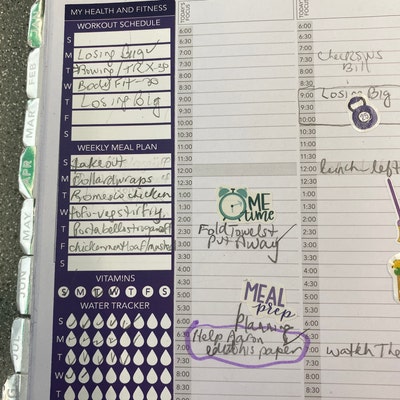 MY HEALTH AND FITNESS
WORKOUT SCHEDULE
S
M Losing Big
T Rowing/TRX
W Body Fit
T Losing Big
F
S
WEEKLY MEAL PLAN
S takeout
M Collard wraps
T chicken
W tofu-veg stirfry
T
F
S
VITAMINS
S M T W T F S
WATER TRACKER
S
M
T
W
T
F
FEB
MAR
APR
MAY
JUN
JUL
TODAY'S
FOCUS
6:00
:30
7:00
:30
8:00
:30
9:00
:30
10:00
:30
11:00
:30
12:00
:30
1:00
:30
2:00
:30
3:00
:30
4:00
:30
5:00
:30
6:00
:30
7:00
7:30
ME
time
Fold Towels &
Put Away
MEAL
prep
Planning
Help Aaron
edit his paper
TODAY'S
FOCUS
6:00
:30
7:00
:30
8:00
:30
9:00
:30
10:00
:30
11:00
:30
12:00
:30
1:00
:30
2:00
:30
3:00
:30
4:00
:30
5:00
:30
6:00
:30
7:00
7:30
Bill
Losing Big
lunch-left
watch The